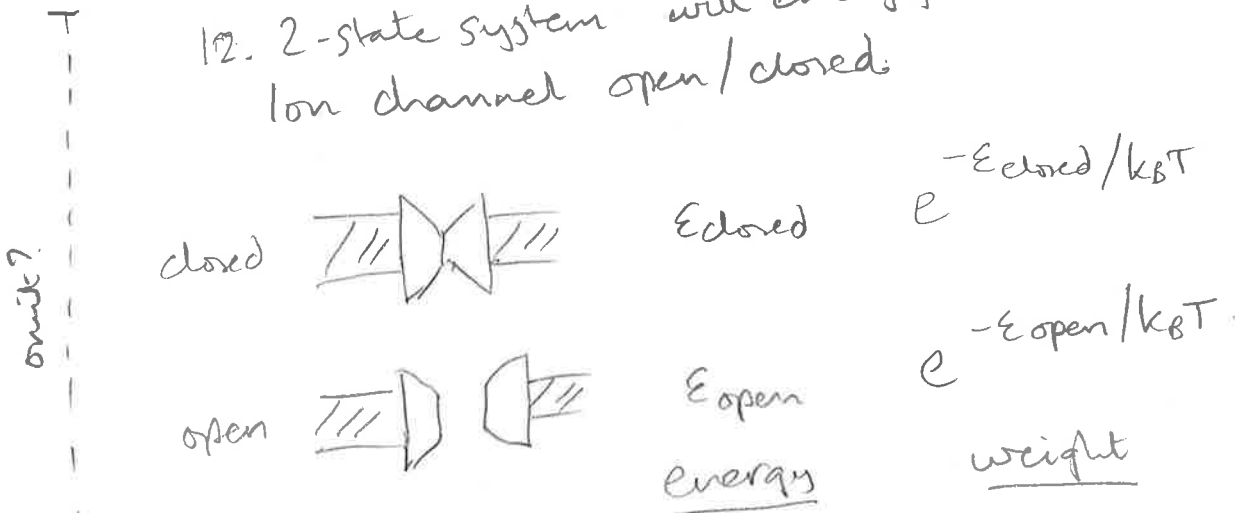 12. 2-state system with energy
Ion channel open/closed.
closed εclosed e^-εclosed/kBT
omit?
open εopen e^-εopen/kBT.
energy weight